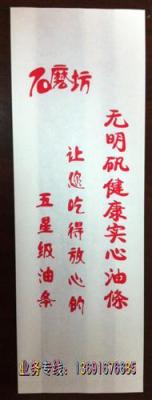 石磨坊
无明矾健康实心油條
让您吃得放心的
五星级油条
业务专线：13691676685